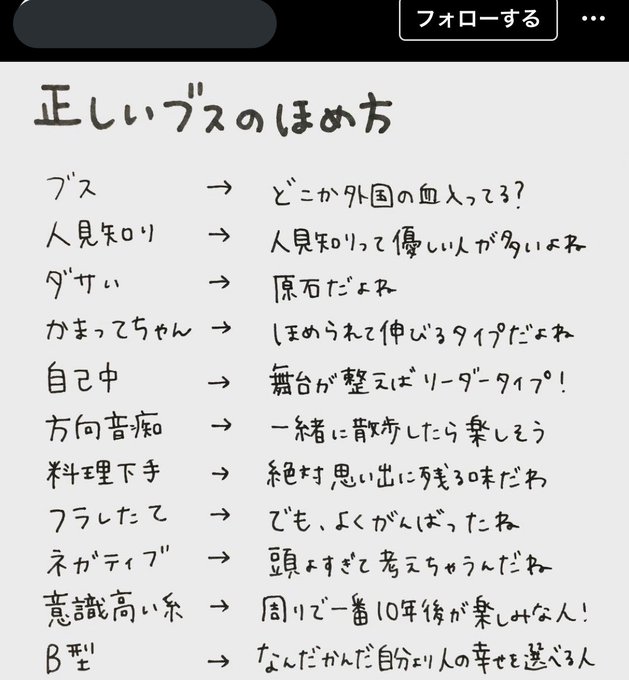 フォローする
正しいブスのほめ方
ブス → どこか外国の血入ってる?
人見知り → 人見知りって優しい人が多いよね
ダサい → 原石だよね
かまってちゃん → ほめられて伸びるタイプだよね
自己中 → 舞台が整えばリーダータイプ!
方向音痴 → 一緒に散歩したら楽しそう
料理下手 → 絶対思い出に残る味だわ
フラしたて → でも、よくがんばったね
ネガティブ → 頭よすぎて考えちゃうんだね
意識高い系 → 周りで一番10年後が楽しみな人!
B型 → なんだかんだ自分より人の幸せを選べる人